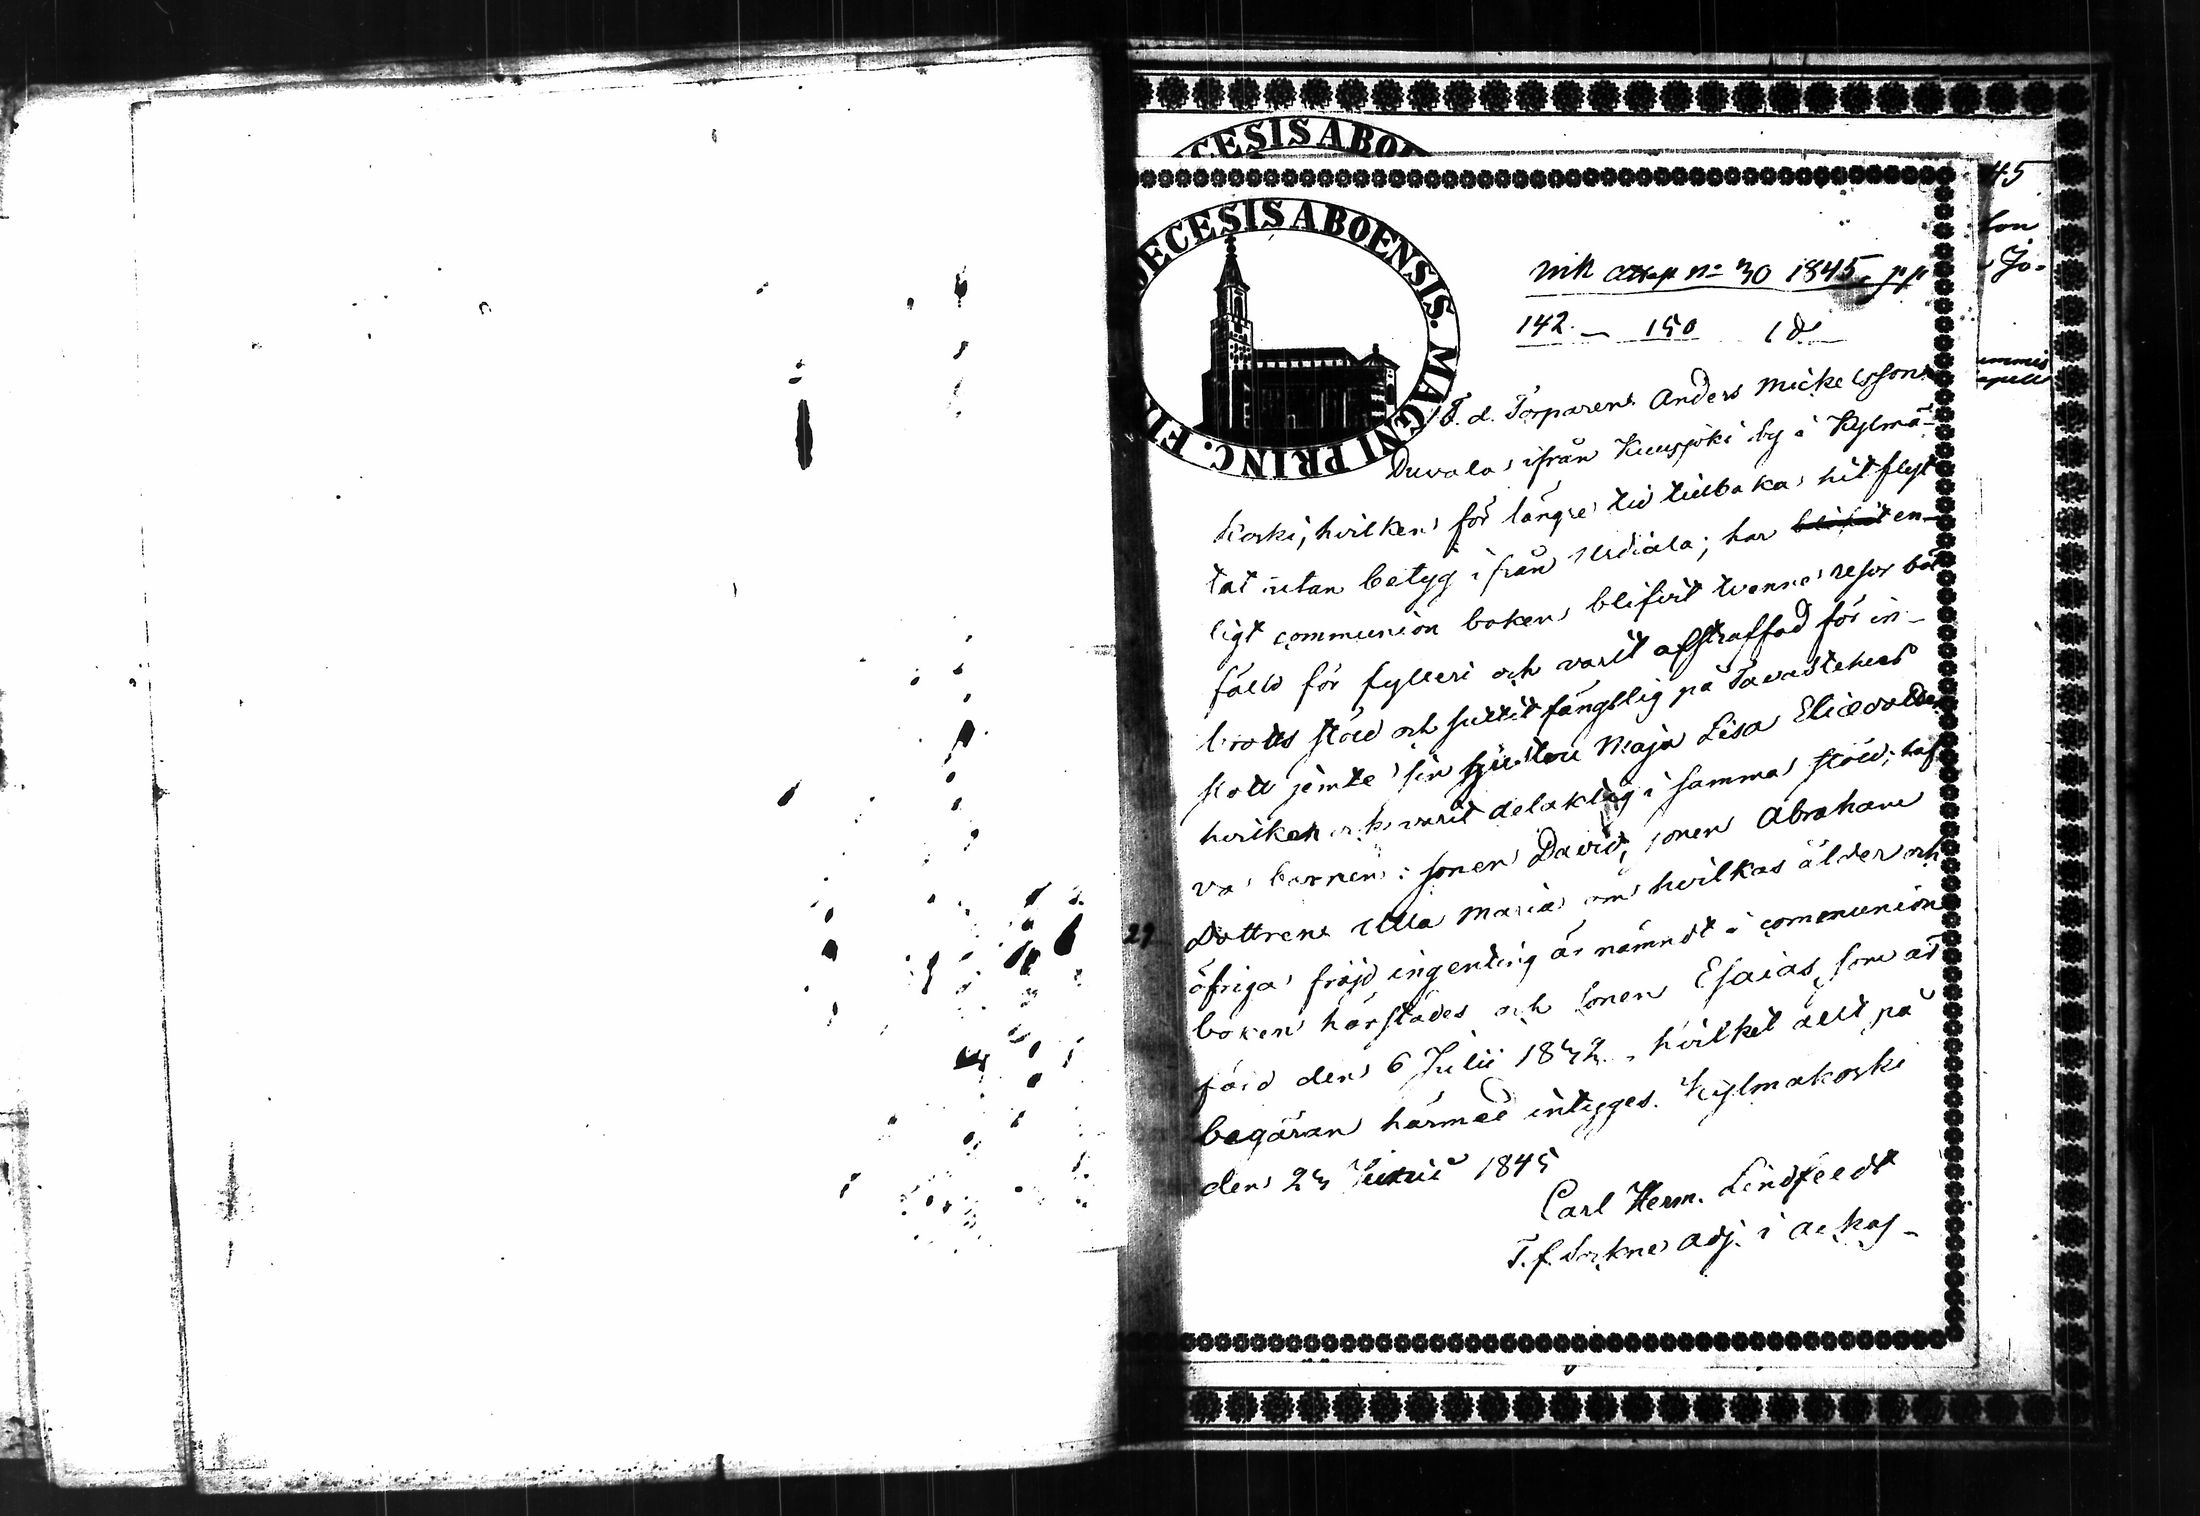 45
DIOECESIS ABOENSIS. MAGNI PRINC.
nik attest no 30 1845, pp
142 — 150
F. d. Torparen Anders Mickelsson
Duvala ifrån Kuusjoki by i Kylmä-
koski, hvilken för längre tid tillbaka hit flyt
tat utan betyg ifrån Urdiala; har en-
ligt communion boken blifvit tvenne resor böt
fälld för fylleri och varit afstraffad för in-
brotts stöld och suttit fängslig på Tavastehus
slott jemte sin hustru Maja Lisa
hvilken ock varit delaktig i samma stöld; haf
va barnen: sonen David, sonen Abraham
Dottren Ulla Maria om hvilkas ålder och
29
öfriga fräjd ingenting är nämndt i communion
boken härstädes och sonen Esaias, som är
född den 6 Julii 1842. hvilket allt på
begäran härmed intygges. Kylmäkoski
den 23 1845
Carl Herm. Lindstedt
T. f. Sockne Adj. i Ackas-